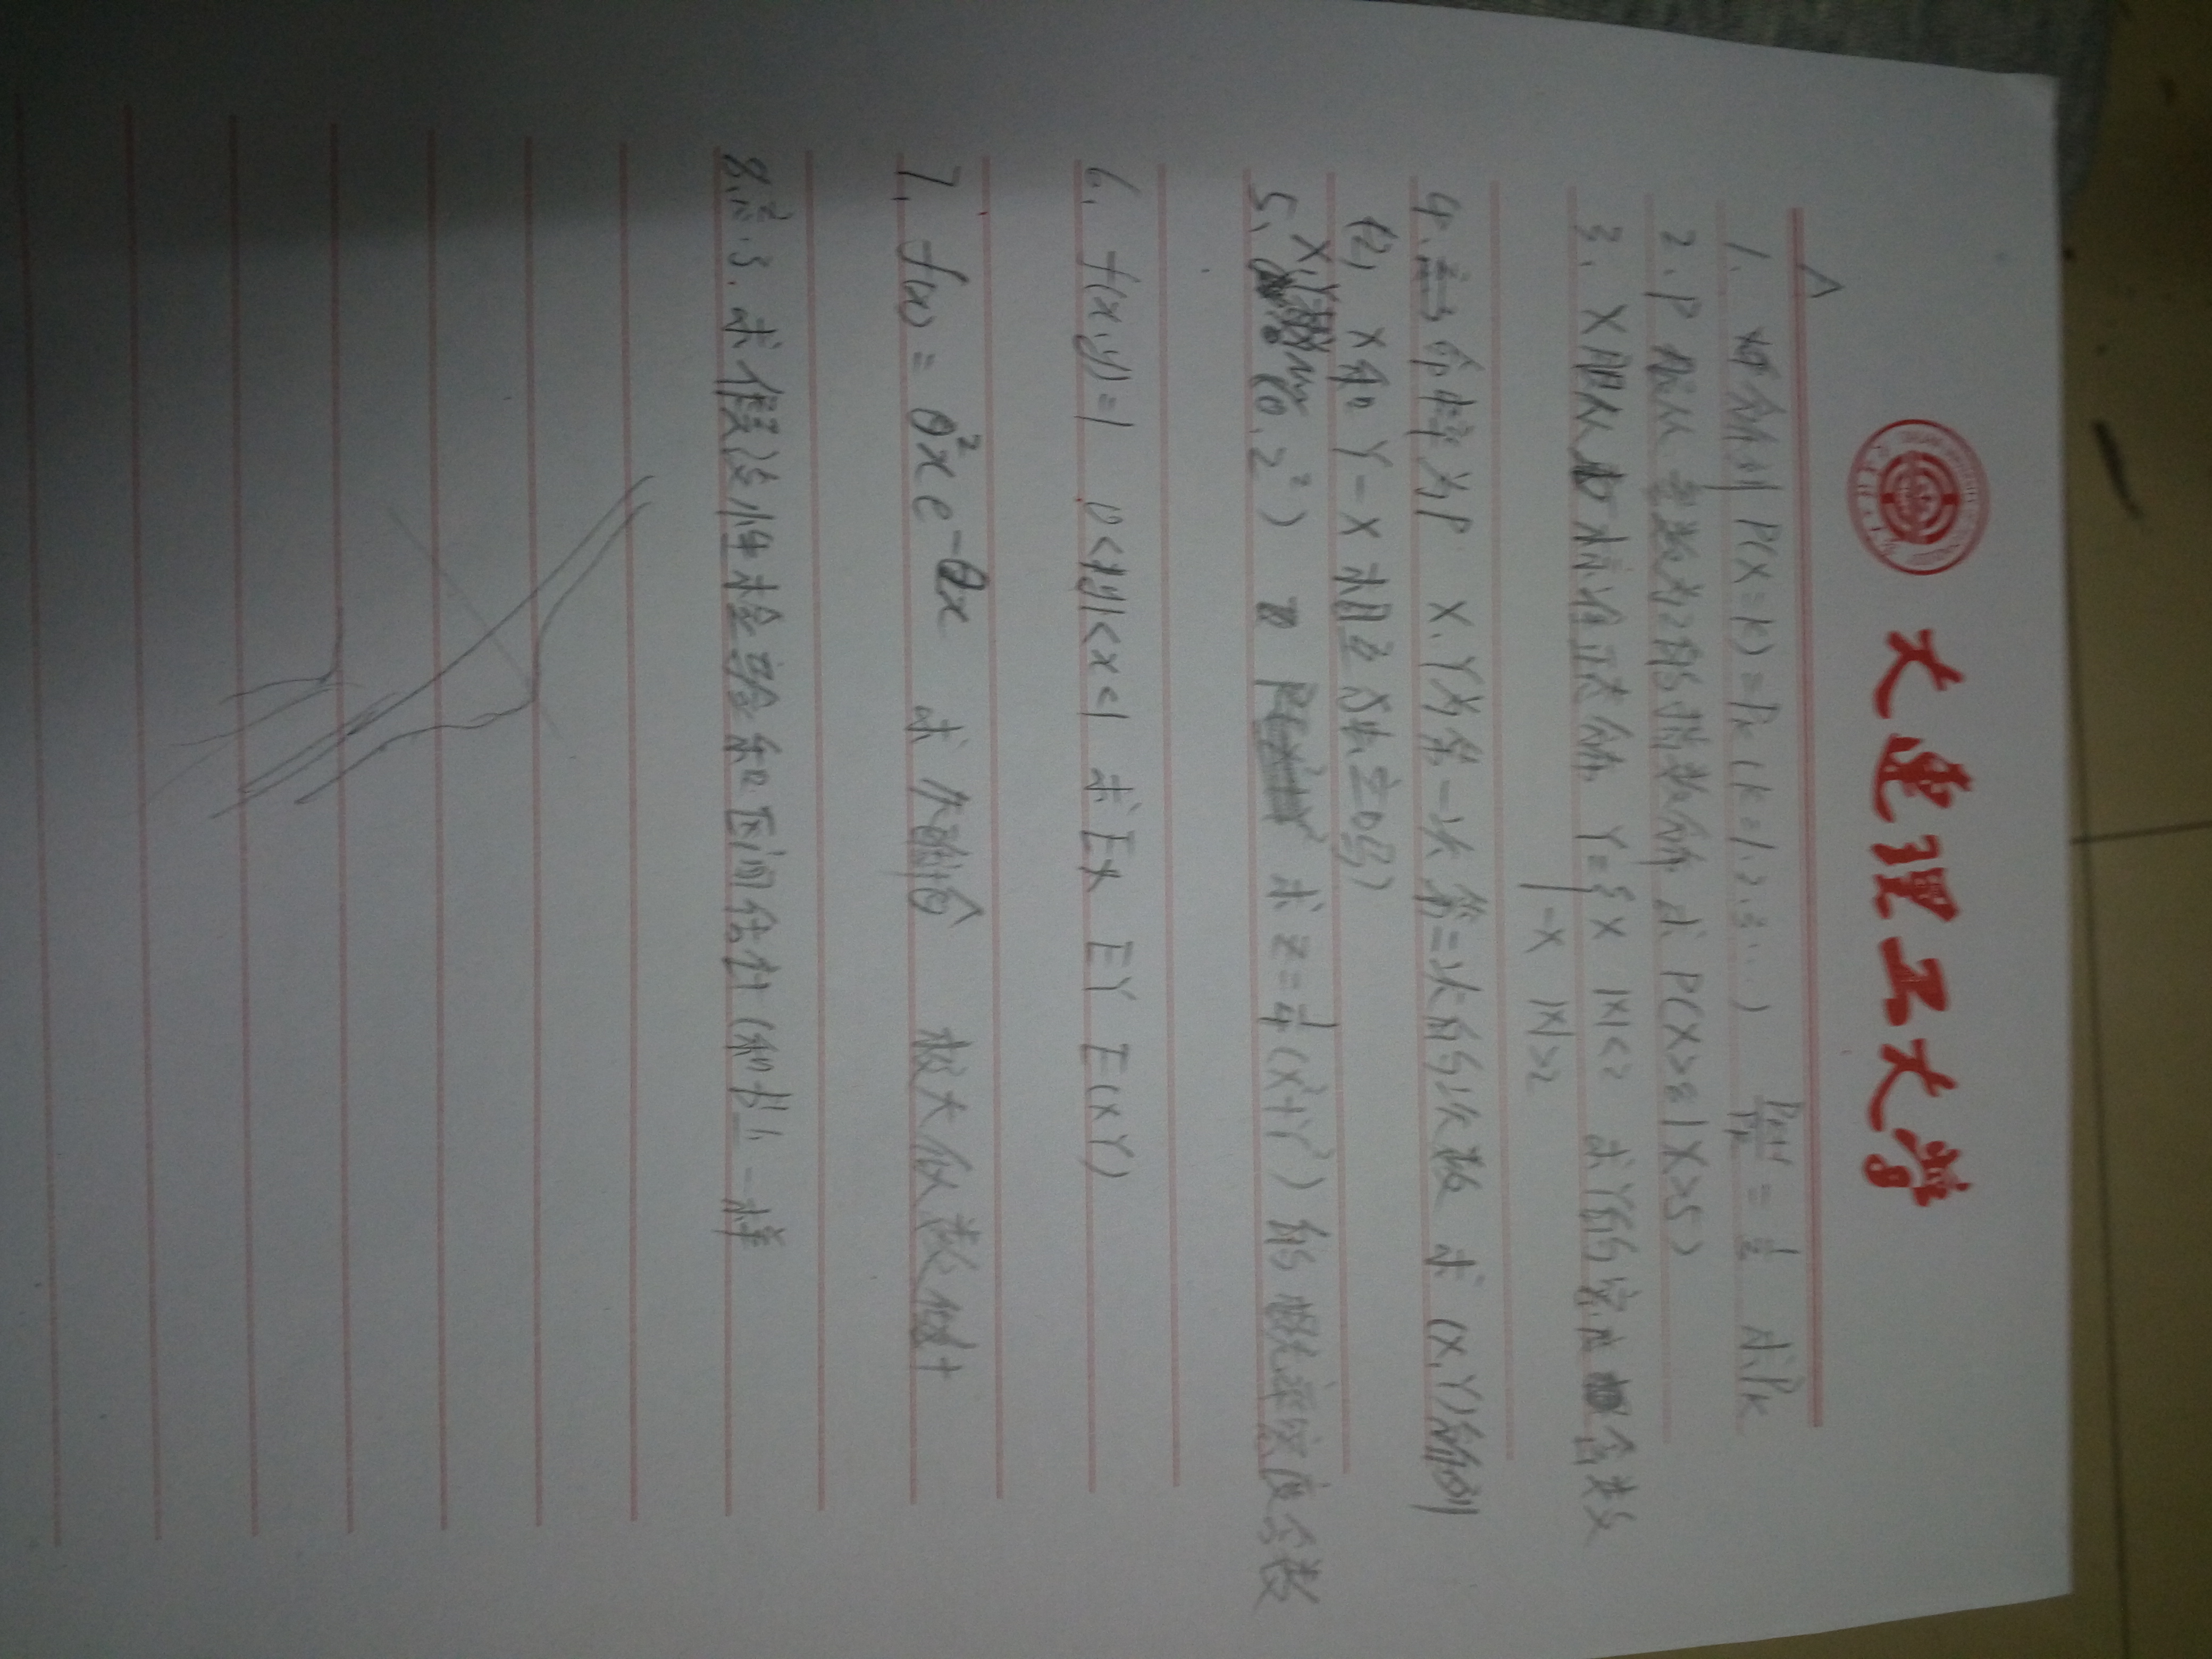 大连理工大学
A
1. 分布列 P(X=k)=Pk (k=1.2.3...) Pk+1/Pk = 1/2 求Pk
2. P 服从 参数为2的指数分布 求 P(X>8|X>5)
3. X服从 标准正态分布 Y={X |X|<2 求Y的 函数
-X |X|>2
4. 命中率为P X、Y为第一次 第二次的次数 求 (X,Y)分布列
(2) X和 Y-X 相互独立吗)
X,Y
5、 (0, 2²) 求 Z=1/4(X²+Y²) 的概率密度函数
6、f(x,y)=1 0<|y|<x<1 求EX EY E(XY)
7、f(x)=θ²xe^-θx 求 矩估 极大似然估计
8、 求假设性检验和区间估计(和书上一样